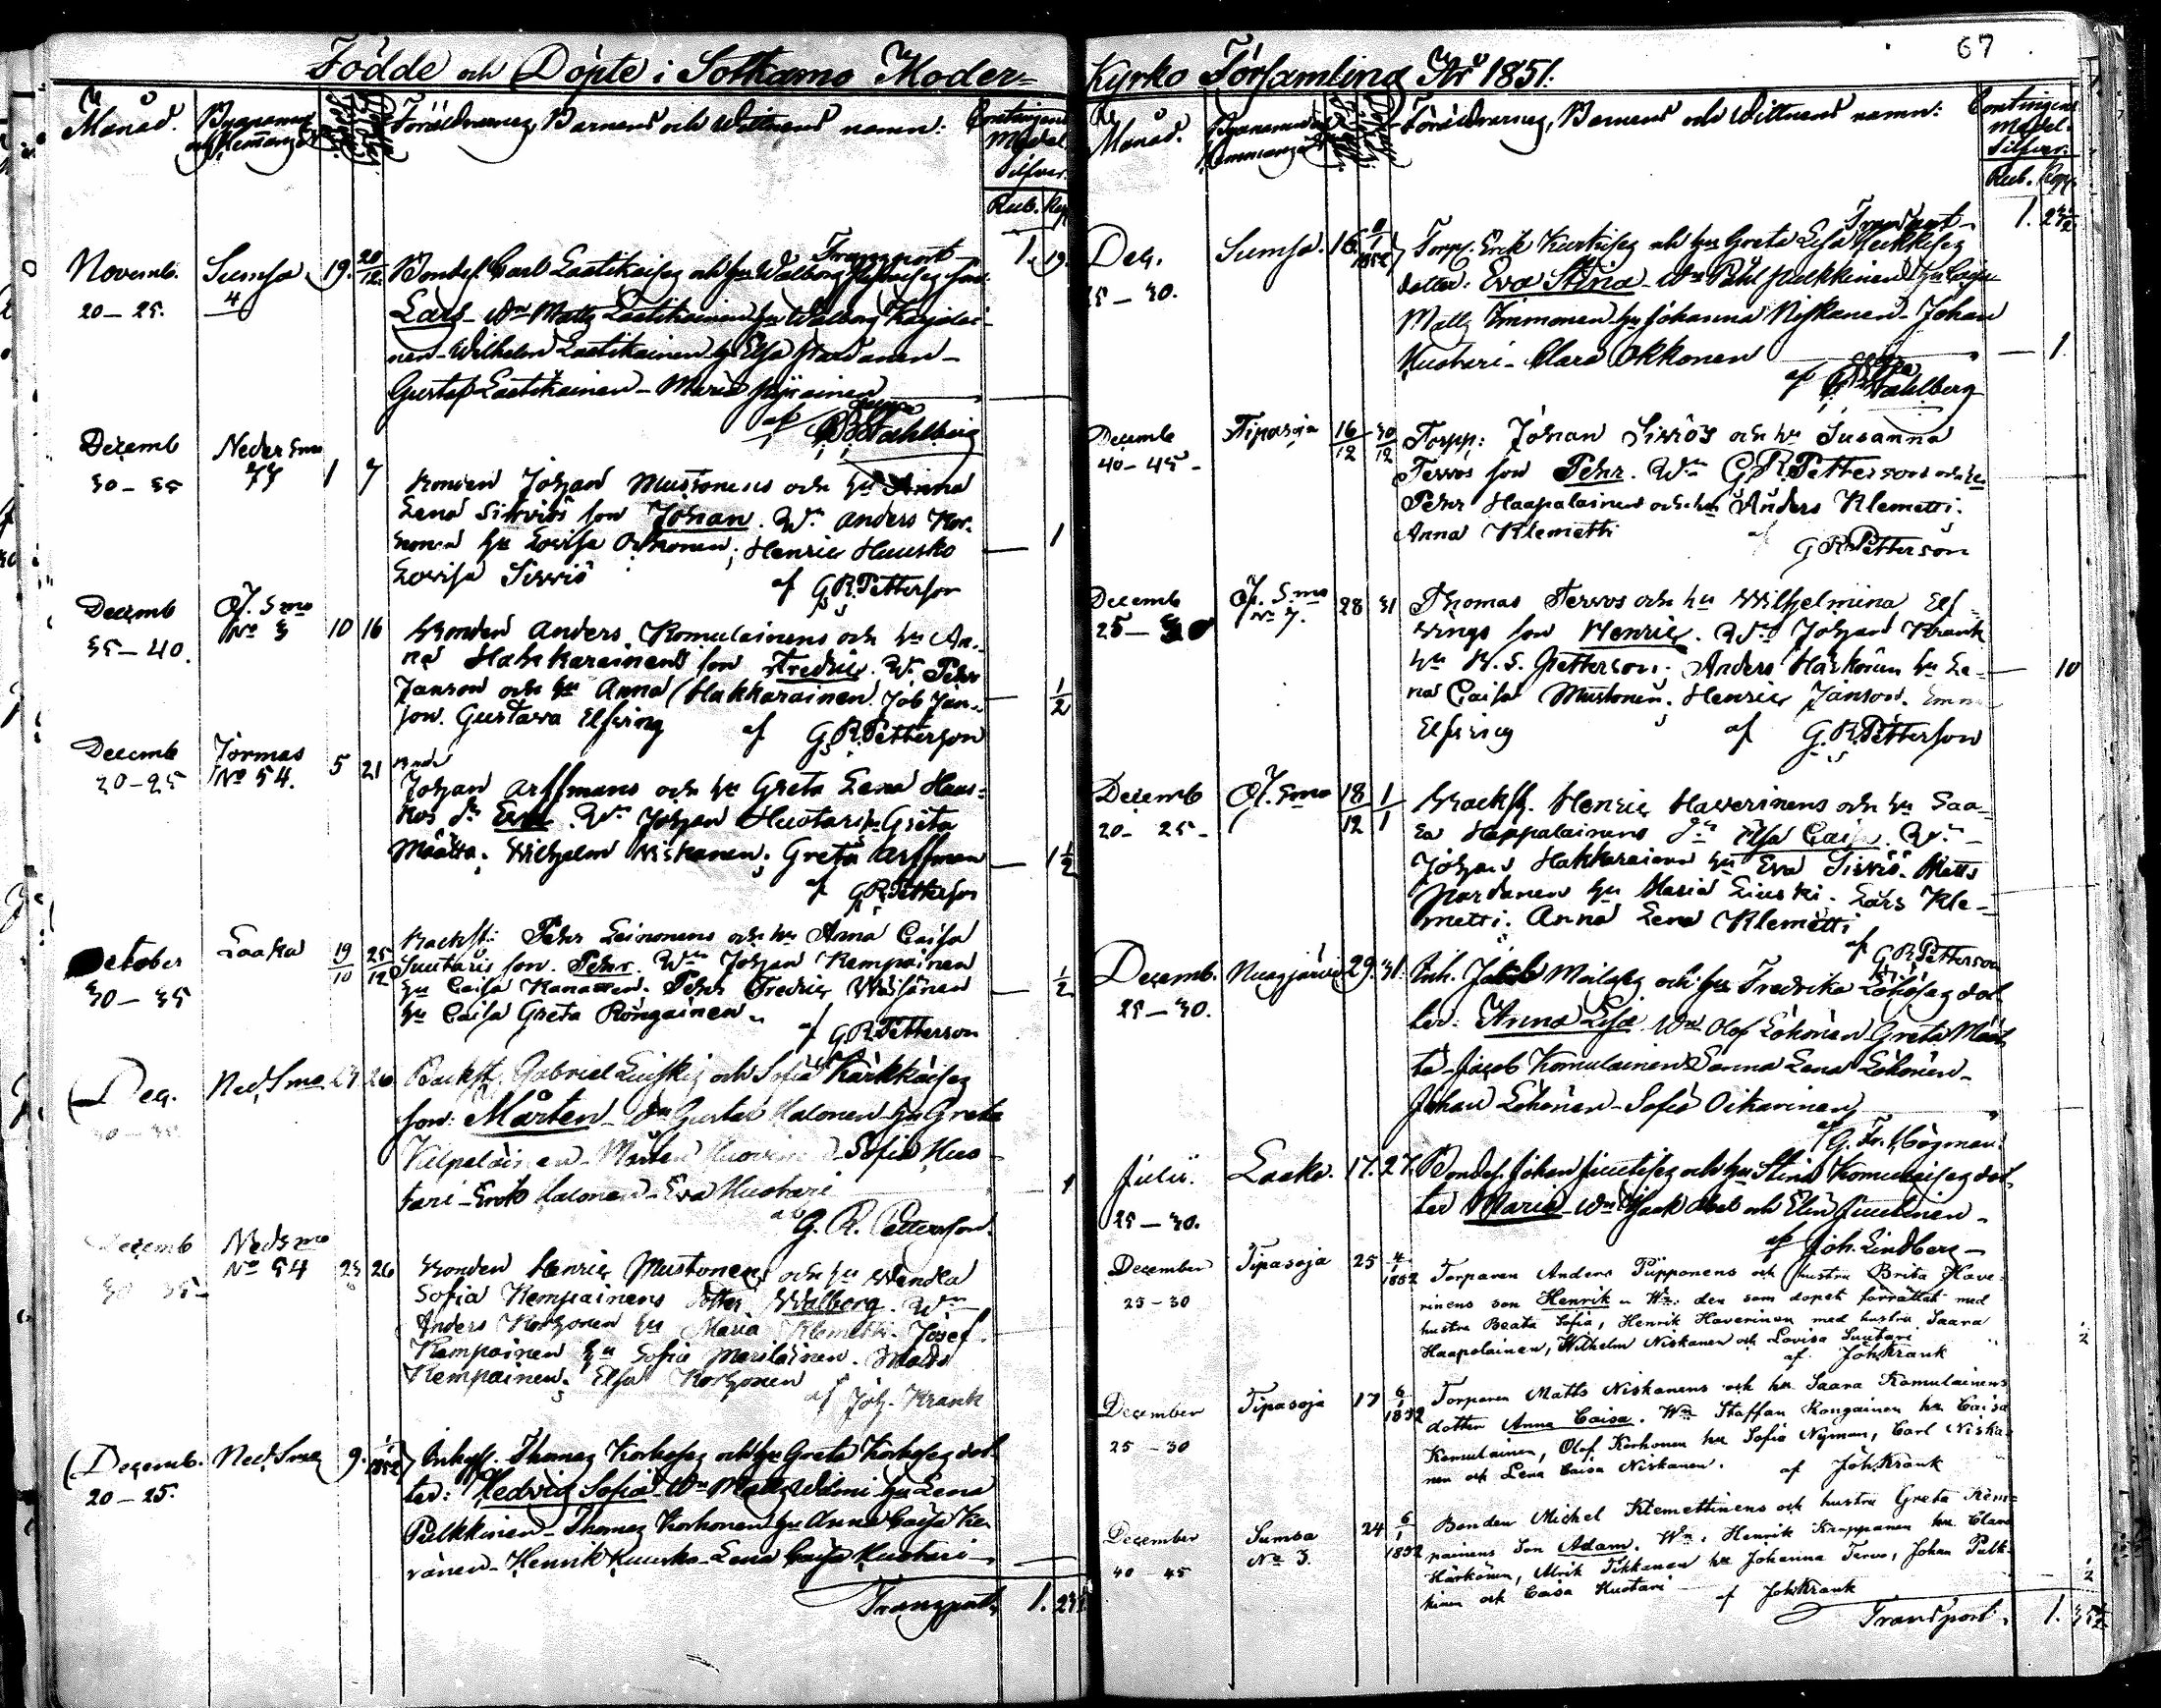 Födde och Döpte i Sotkamo Moder=
Månad.
Föräldrarnes, Barnens och Wittnens namn:
Medal.
Silfver.
Rub. Kop.
Transport
1. 19.
Novemb. Sumsa 19. 20/12
20-25. 4
Bondes. Carl Laatikaises och hu Walborg
Lars. Wn Matts Laatikainen hu Walborg Karjalai-
nen - Wilhelm Laatikainen hu Elsa
Gustaf Laatikainen - Maria
af Stahlberg
Decemb Neder Smo 1 7
30-35
Bonden Johan Mustonens och hu Anna
Lena Sirviös son Johan. Wn Anders Kor-
honen hu Lovisa Okkonen; Henric Huusko
Lovisa Sirviö 1
af G.R. Petterson
Decemb Öf. Smo 10 16
35-40. No 3
Bonden Anders Komulainens och hu An-
na Hakkarainens son Fredric. Wn Pehr
Janson och hu Anna Hakkarainen. Job Jan-
son. Gustava Elfving 1/2
af G.R. Petterson
Decemb Jormas 5 21
20-25 No 54.
Johan Arffmans och hu Greta Lena Haus-
kos dr. Wn Johan Huotari hu Greta
Määtta. Wilhelm Niskanen. Greta Arffman 1 1/2
af G.R. Petterson
October Laaka 19/10 25/12
30-35
Backst: Pehr Leinonens och hu Anna Caisa
Suutaris son. Pehr. Wn Johan Kempainen
hu Caisa Kananen. Pehr Fredric Wäisänen
hu Caisa Greta Rongainen. 1/2
af G.R. Petterson
Dec. Ned. Smo 26
Backst. Gabriel och Sofia Kärkkäises
son: Mårten - Wn Gustaf Halonen hu Greta
Kilpeläinen - Mårten - Sofia Huo-
tari - Halonen - Eva Huotari 1
G. R. Petterson.
Decemb Ned Smo 23 26
30 35 No 54
Bonden Henric Mustonens och hu Wendla
Sofia Kempainens dotter Walborg. Wn
Anders Korhonen hu Maria Klemetti. Josef
Kempainen hu Sofia Meriläinen. Matts
Kempainen. Elsa Korhonen
af Joh. Krank
Decemb. Ned. Smo 9. 1852
20-25.
Inhys. Thomas Korhoses och hu Greta Korhoses dot-
ter: Hedvig Sofia - Wn Matts hu Lena
Pulkkinen - Thomas Korhonen hu Anna Caisa Ke-
ränen - Henrik Huusko - Lena Caisa Huotari
Transport 1.
67
Kyrko Församling År 1851.
Månad.
Föräldrarnes, Barnens och Wittnens namn:
Contingent
Medal.
Silfver.
Rub. Kop.
Transport 1.
Dec. Sumsa. 16 1852
25-30.
Torp. Erik och hu Greta Lisa
dotter: Eva Stina - Wn Påhl Pulkkinen
Matts Immonen hu Johanna Niskanen - Johan
Huotari - Clara Okkonen 1.
af Stahlberg
Decemb Tipasoja 16/12 30/12
40-45
Torpp: Johan Sirviös och hu Susanna
Tervos son Pehr. Wn G.R. Petterson och hu
Pehr Haapalainen och hu Anders Klemetti.
Anna Klemetti
af G.R. Petterson
Decemb Öf. Smo 28 31
25-30 No 7.
Thomas Tervos och hu Wilhelmina Elf-
wings son Henric. Wn Johan Krank
hu Petterson. Anders Härkönen hu Le-
na Caisa Mustonen. Henric Janson. Emma
Elfving 10
af G.R. Petterson
Decemb Öf. Smo 18/12 1/1
20-25
Backst. Henric Haverinens och hu Saa-
ra Happalainens dr Elsa Caisa. Wn
Johan Hakkarainen hu Eva Sirviö. Matts
Pardanen hu Maria Liuski. Lars Kle-
metti. Anna Lena Klemetti
af G.R. Petterson
Decemb. Nuasjärvi 29. 31.
25-30.
Inh. och hu Fredrika dot-
ter: Anna Lisa. Wn Olof Löhönen Greta Määt-
tä - Jacob Komulainen Sanna Lena Löhönen -
Johan Löhönen - Sofia Oikarinen
af G. Fr. Högman.
Julii. Laaka. 17. 27.
25-30.
Bondes. Johan och hu Stina Komulaises dot-
ter Maria - Wn och Elin Juntunen
af Joh. Lindberg
December Tipasoja 25 4/1 1852
25-30
Torparen Anders Piipponens och hustru Brita Have-
rinens son Henrik. Wn: den som dopet förrättat med
hustru Beata Sofia, Henrik Haverinen med hustru Saara
Haapalainen, Wilhelm Niskanen och Lovisa Suutari 1/2
af Joh. Krank
December Tipasoja 17 6/1 1852
25-30
Torparen Matts Niskanens och hu Saara Komulainens
dotter Anna Caisa. Wn Staffan Rongainen hu Caisa
Komulainen, Olof Korhonen hu Sofia Nyman, Carl Niska-
nen och Lena Caisa Niskanen.
af Joh. Krank
December Sumsa 24 6/1 1852
40-45 No 3.
Bonden Michel Klemettinens och hustru Greta Kem-
painens Son Adam. Wn: Henrik Karppanen hu Clara
Härkönen, Ulrik Tikkanen hu Johanna Tervo, Johan Pulk-
kinen och Caisa Huotari 1/2
af Joh. Krank
Transport. 1.